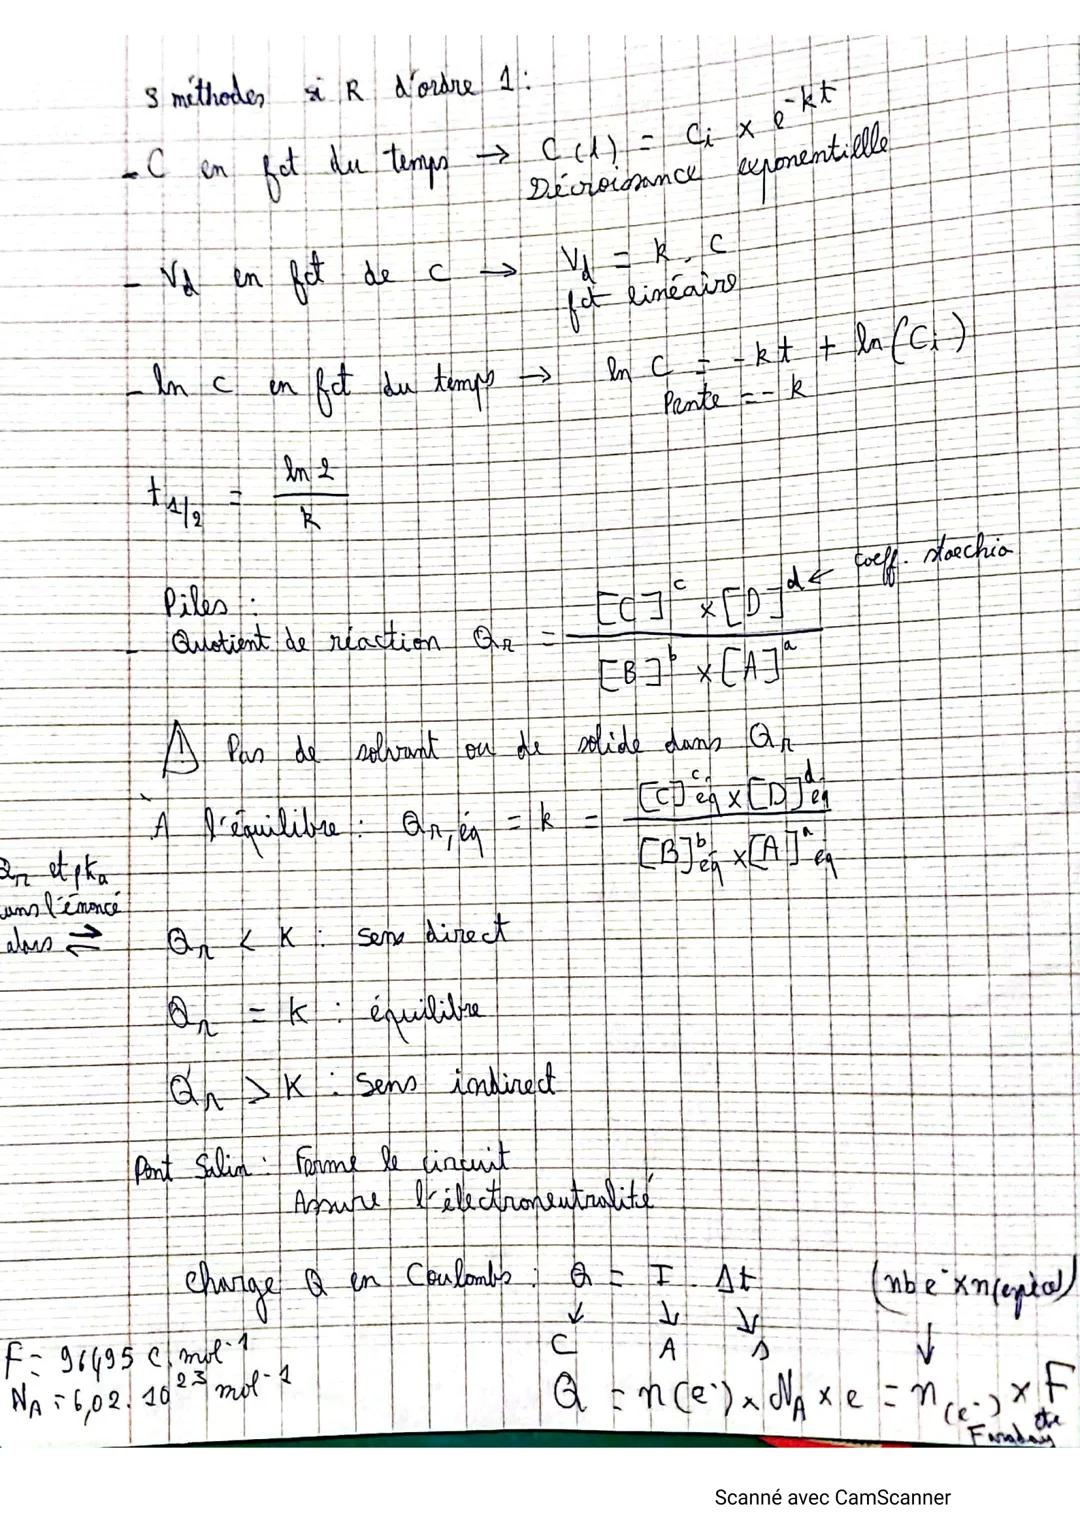 3 méthodes si R d'ordre 1 :
- C en fct du temps → C(t) = Ci × e^-kt
Décroissance exponentielle
- Vd en fct de C → Vd = k . C
fct linéaire
- ln C en fct du temps → ln C = -kt + ln(Ci)
Pente = -k
t1/2 = ln 2 / k
Piles :
- Quotient de réaction Qr = [C]^c × [D]^d / [B]^b × [A]^a ← coeff. stoechio
⚠ Pas de solvant ou de solide dans Qr
À l'équilibre : Qr,éq = k = [C]^c éq × [D]^d éq / [B]^b éq × [A]^a éq
Qr et pka
dans l'énoncé
alors ⇌
Qr < K : sens direct
Qr = K : équilibre
Qr > K : sens indirect
Pont Salin : Ferme le circuit
Assure l'électroneutralité
charge Q en Coulombs : Q = I . Δt (nb e- × n(espèce))
↓ ↓ ↓ ↓
C A s
F = 96495 C.mol-1
NA = 6,02.10^23 mol-1
Q = n(e-) × NA × e = n(e-) × F
cte
Faraday
Scanné avec CamScanner